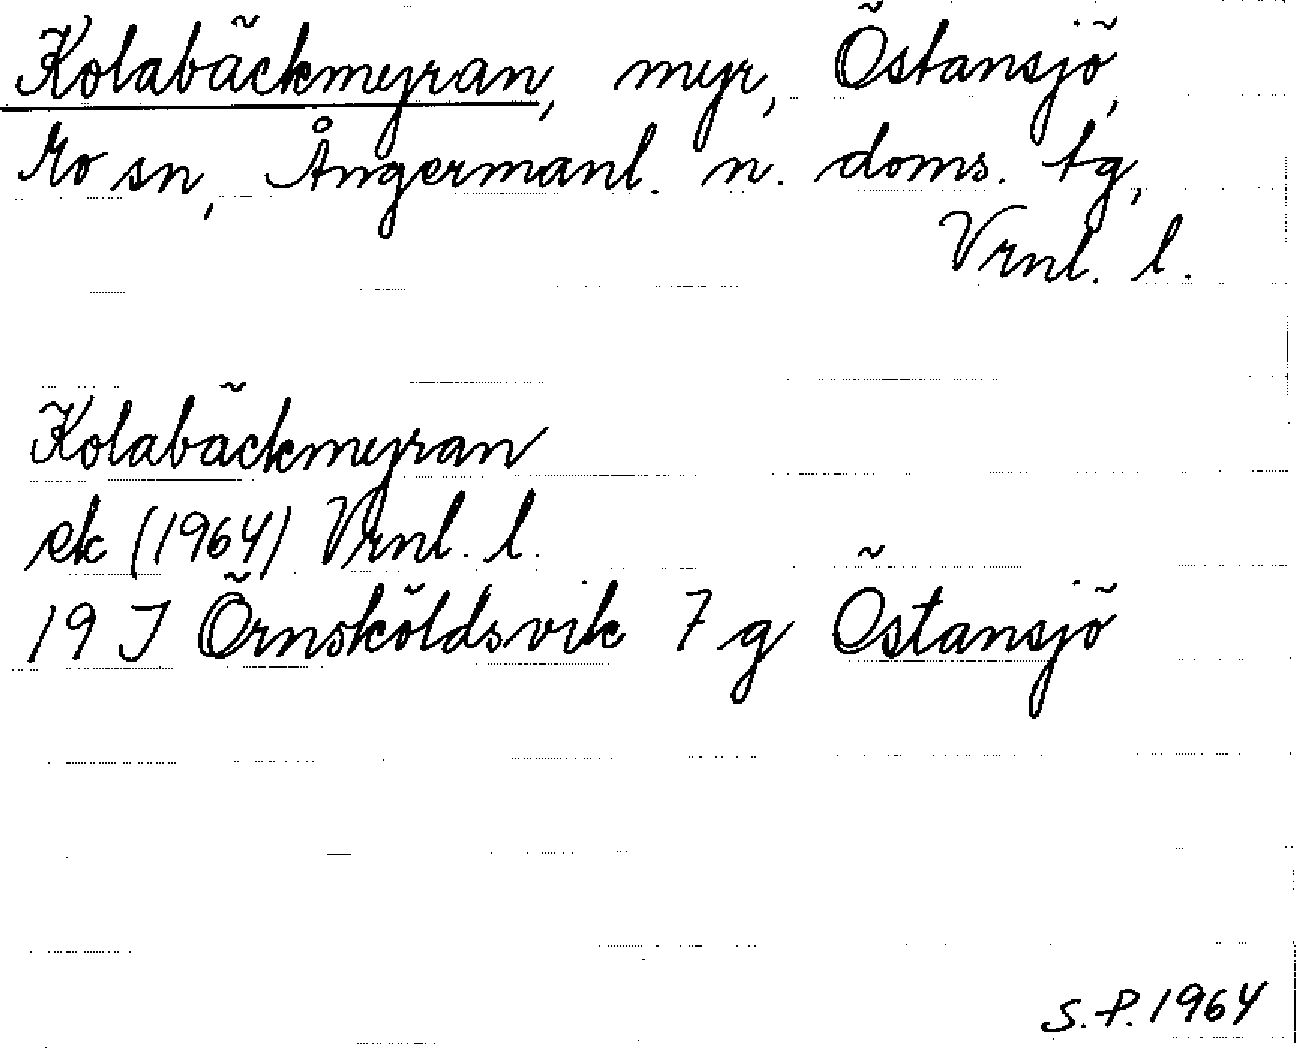 Kolabäckmyran, myr, Östansjö,
Mo sn, Ångermanl. n. doms. tg,
Vrnl. l.
Kolabäckmyran
ek (1964) Vrnl. l.
19 J Örnsköldsvik 7 g Östansjö
S.P. 1964